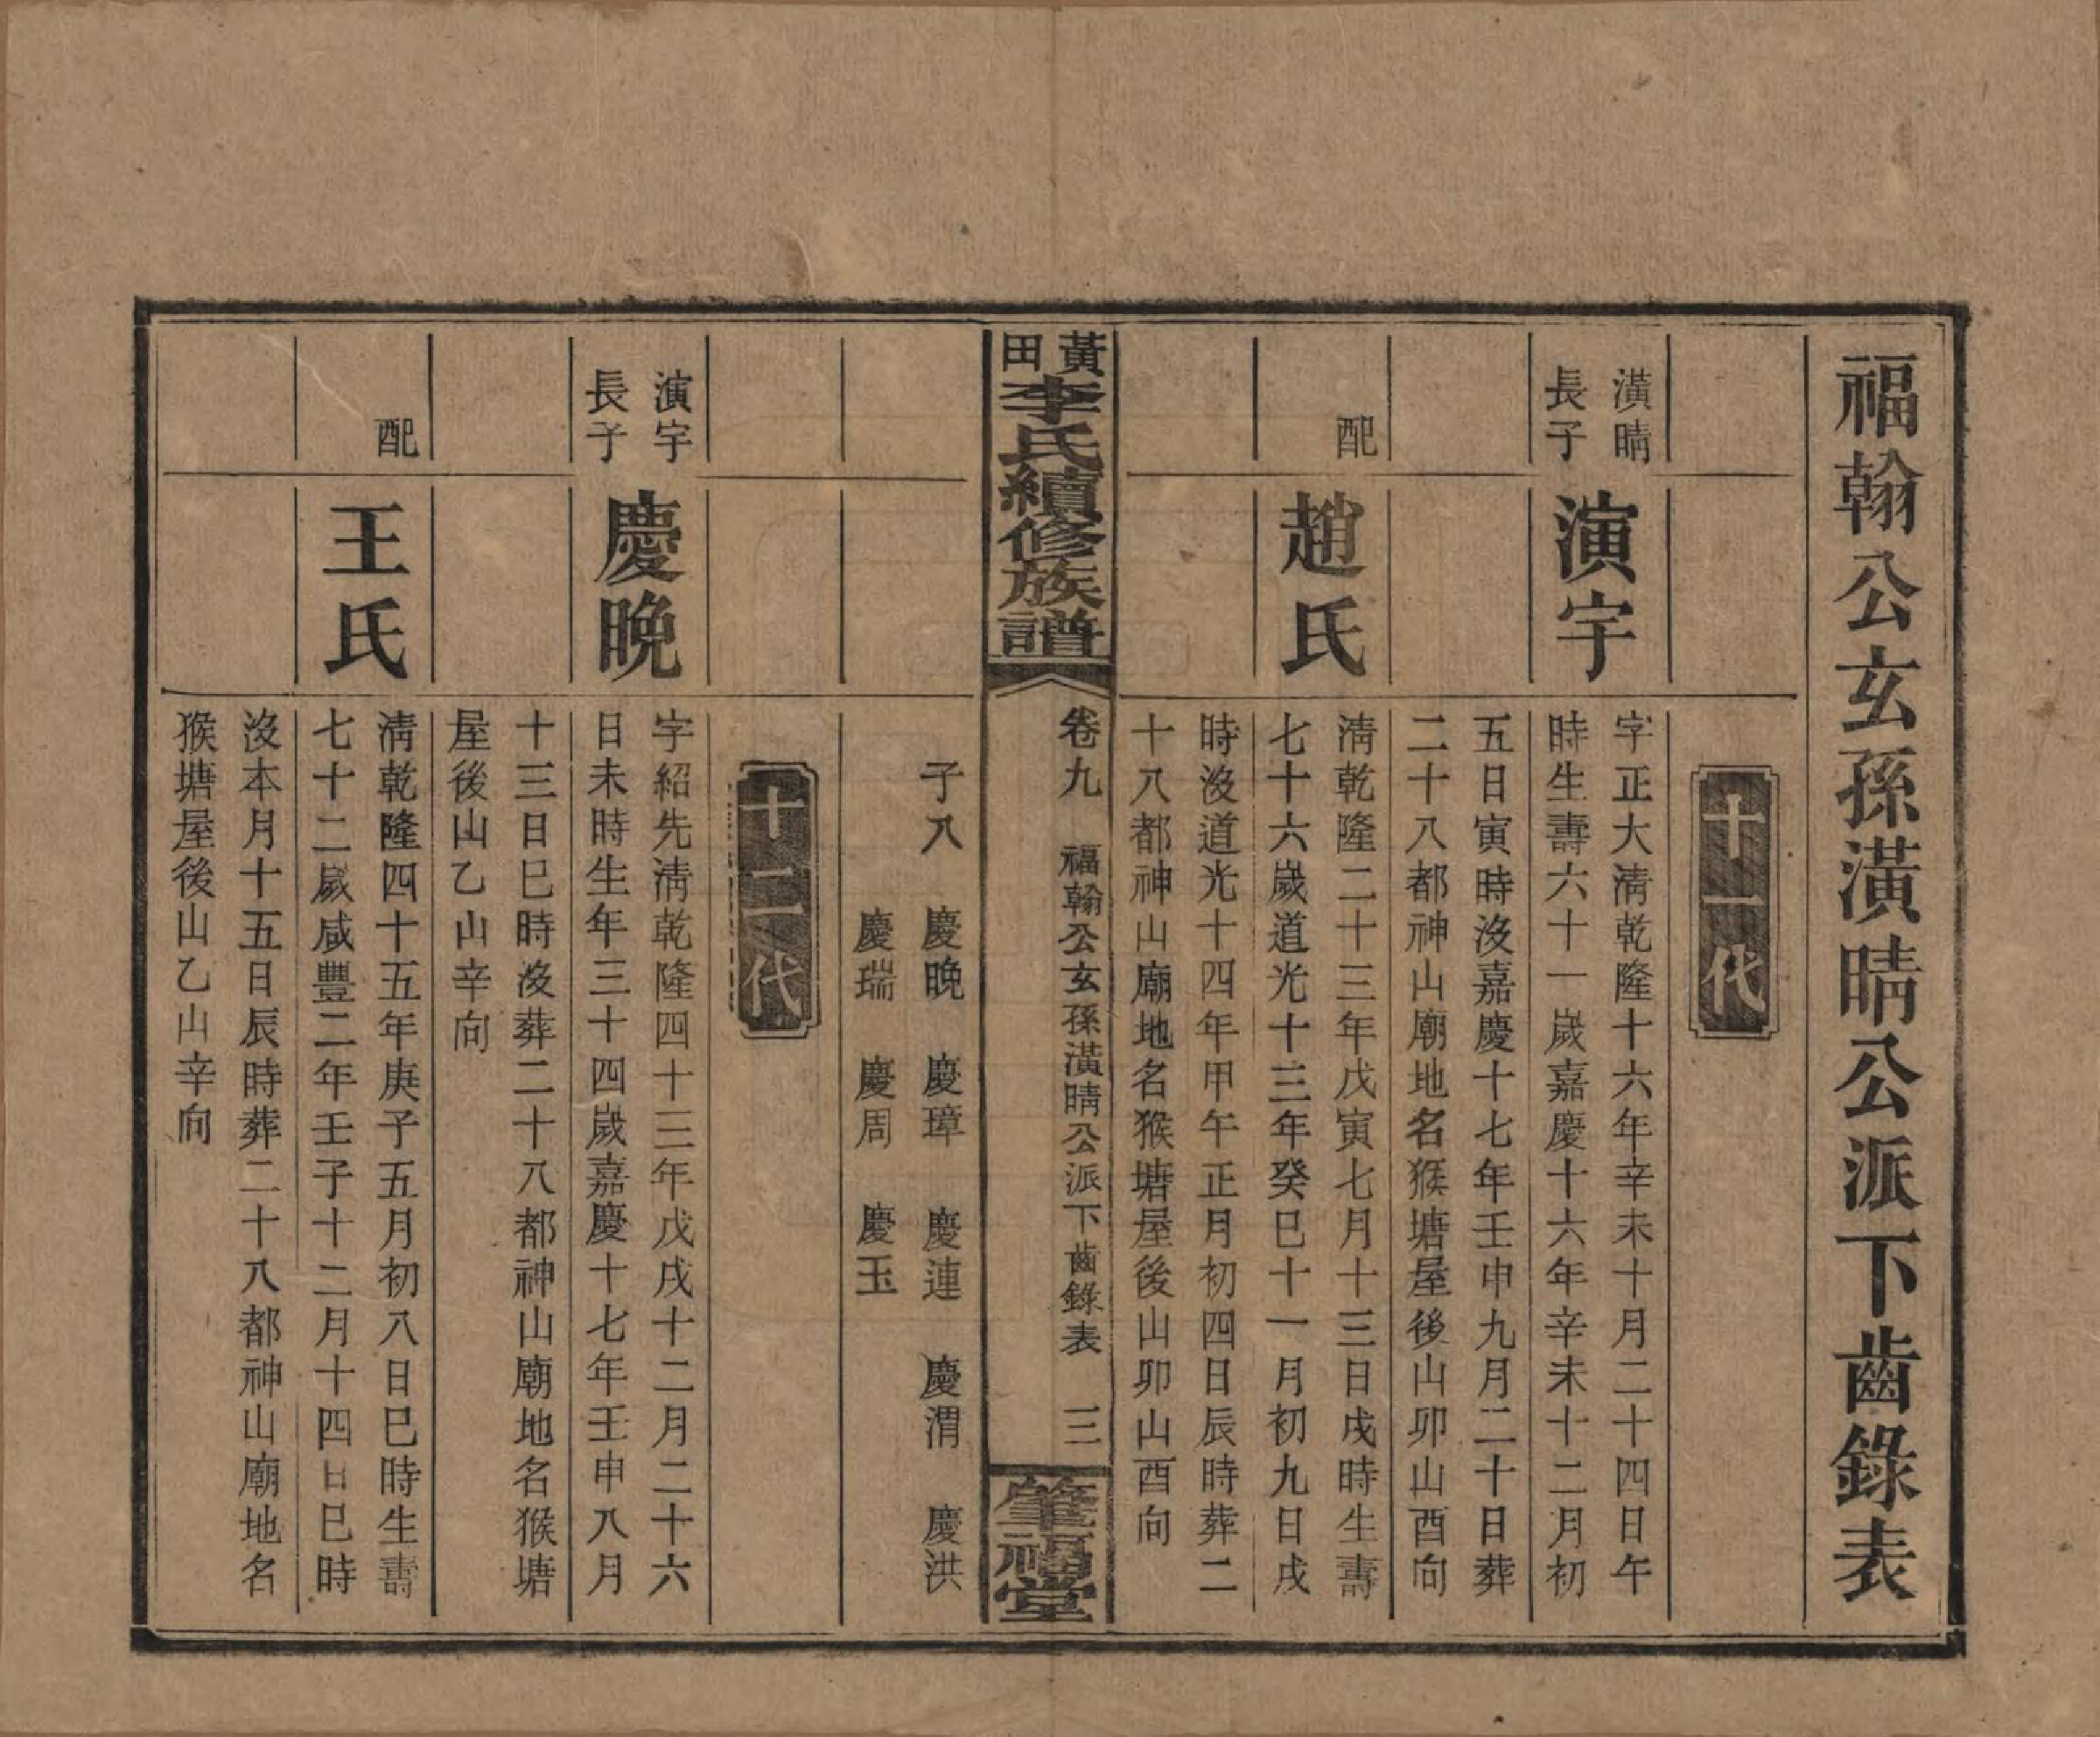 福翰公玄孫潢晴公派下齒錄表
十一代
潢晴
長子
演宇
字正大清乾隆十六年辛未十月二十四日午
時生壽六十一歲嘉慶十六年辛未十二月初
五日寅時沒嘉慶十七年壬申九月二十日葬
二十八都神山廟地名猴塘屋後山卯山酉向
配
趙氏
清乾隆二十三年戊寅七月十三日戌時生壽
七十六歲道光十三年癸巳十一月初九日戌
時沒道光十四年甲午正月初四日辰時葬二
十八都神山廟地名猴塘屋後山卯山酉向
黃田
李氏續修族譜
卷九 福翰公玄孫潢晴公派下齒錄表 三
肇福堂
子八 慶晚 慶璋 慶連 慶渭 慶洪
慶瑞 慶周 慶玉
十二代
演宇
長子
慶晚
字紹先清乾隆四十三年戊戌十二月二十六
日未時生年三十四歲嘉慶十七年壬申八月
十三日巳時沒葬二十八都神山廟地名猴塘
屋後山乙山辛向
配
王氏
清乾隆四十五年庚子五月初八日巳時生壽
七十二歲咸豐二年壬子十二月十四日巳時
沒本月十五日辰時葬二十八都神山廟地名
猴塘屋後山乙山辛向